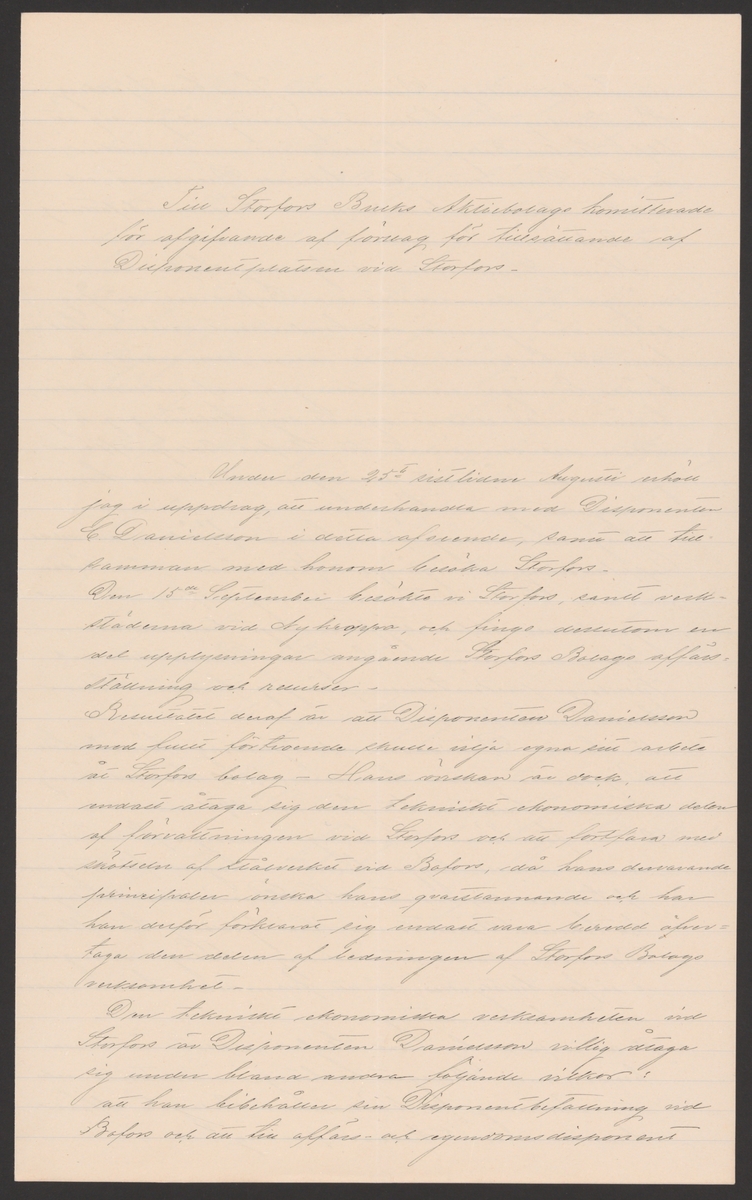 Till Storfors Bruks Aktiebolags komitterade
för afgifvande af förslag för tillsättande af
Disponentplatsen vid Storfors.
Under den 25t sistlidne Augusti erhöll
jag i uppdrag, att underhandla med Disponenten
C. Danielsson i detta afseende, samt att till-
samman med honom besöka Storfors.
Den 15de September besökte vi Storfors, samt verk-
städerna vid Nykroppa, och fingo dessutom en
del upplysningar angående Storfors Bolags affärs-
ställning och resurser –
Resultatet deraf är att Disponenten Danielsson
med fullt förtroende skulle vilja egna sitt arbete
åt Storfors bolag – Hans önskan är dock, att
endast åtaga sig den tekniskt ekonomiska delen
af förvaltningen vid Storfors och att fortfara med
skötseln af stålverket vid Bofors, då hans dervarande
principaler önska hans qvarstannande och har
han derför förklarat sig endast vara beredd öfver=
taga den delen af ledningen af Storfors Bolags
verksamhet –
Den tekniskt ekonomiska verksamheten vid
Storfors är Disponenten Danielsson villig åtaga
sig under bland andra följande vilkor:
att han bibehåller sin Disponentbefattning vid
Bofors och att till affärs- och egendomsdisponent